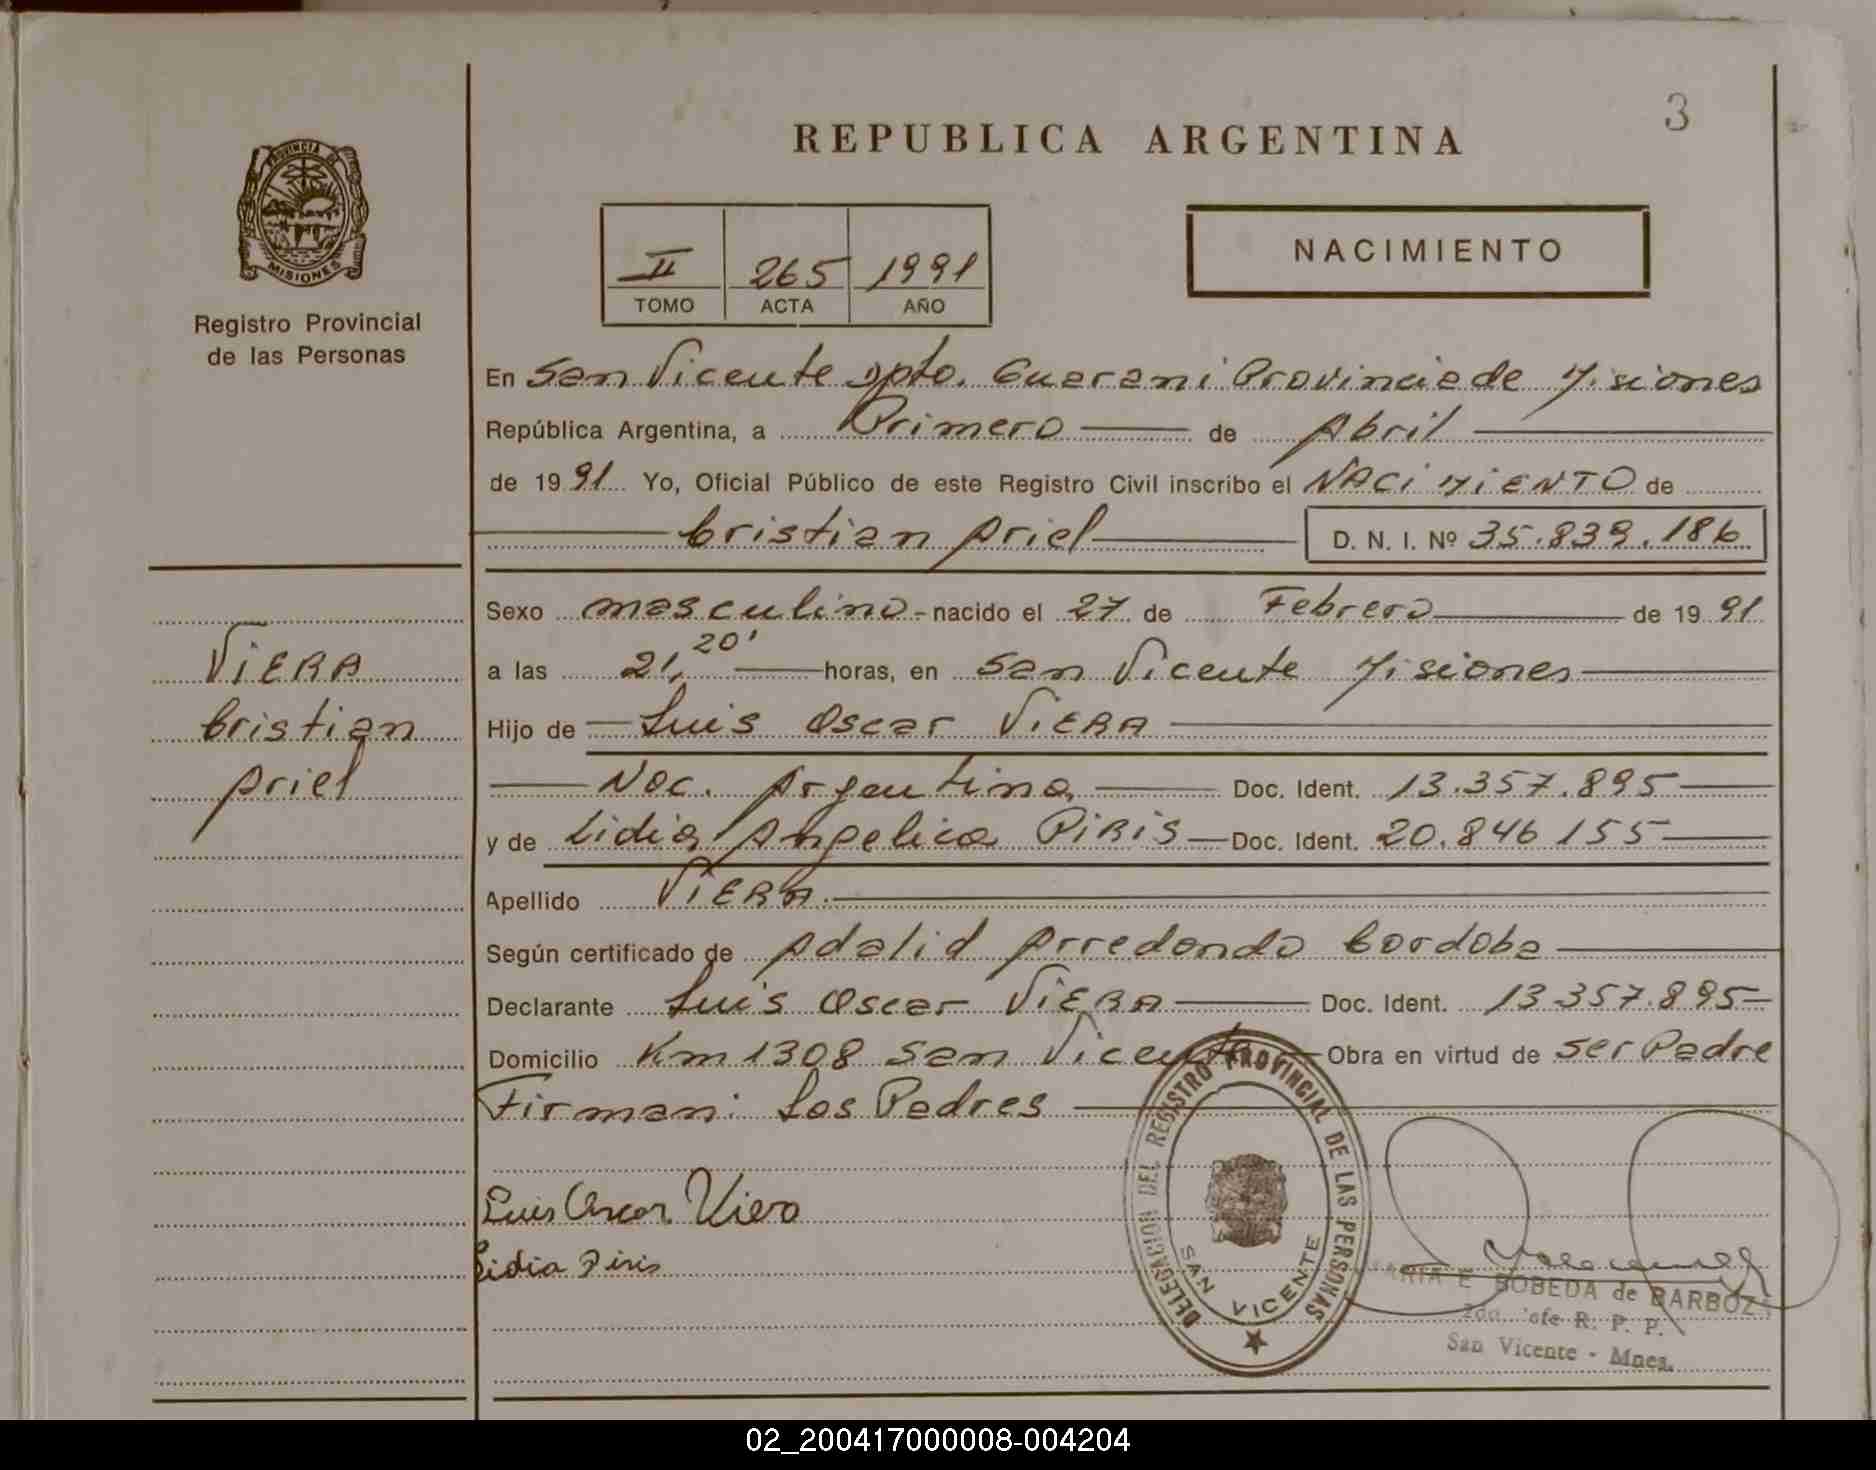 3
REPUBLICA ARGENTINA
PROVINCIA DE
MISIONES
Registro Provincial
de las Personas
II 265 1991
TOMO ACTA AÑO
NACIMIENTO
En San Vicente Dpto. Guarani Provincia de Misiones
República Argentina, a Primero de Abril
de 1991 Yo, Oficial Público de este Registro Civil inscribo el NACIMIENTO de
Cristian Ariel D. N. I. Nº 35.839.186
Sexo masculino - nacido el 27 de Febrero de 1991
a las 21,20' horas, en San Vicente Misiones
Hijo de Luis Oscar VIERA
Nac. Argentina Doc. Ident. 13.357.895
y de Lidia Angelica PIRIS Doc. Ident. 20.846 155
Apellido VIERA.
Según certificado de Adalid Arredondo Cordoba
Declarante Luis Oscar VIERA Doc. Ident. 13 357.895
Domicilio Km 1308 San Vicente Obra en virtud de ser Padre
Firman: Los Padres
VIERA
Cristian
Ariel
Luis Oscar Viera
Lidia Piris
DELEGACION DEL REGISTRO PROVINCIAL DE LAS PERSONAS
SAN VICENTE
MARIA E BOBEDA de BARBOZA
2do. Jefe R. P. P.
San Vicente - Mnes.
02_200417000008-004204